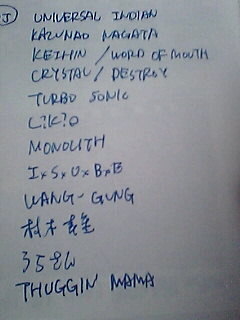 J UNIVERSAL INDIAN
KAZUNAO NAGATA
KEIHIN / WORD OF MOUTH
CRYSTAL / DESTROY
TURBO SONIC
L?K?O
MONOLITH
I×S×U×B×B
WANG-GUNG
村木
THUGGIN MAMA